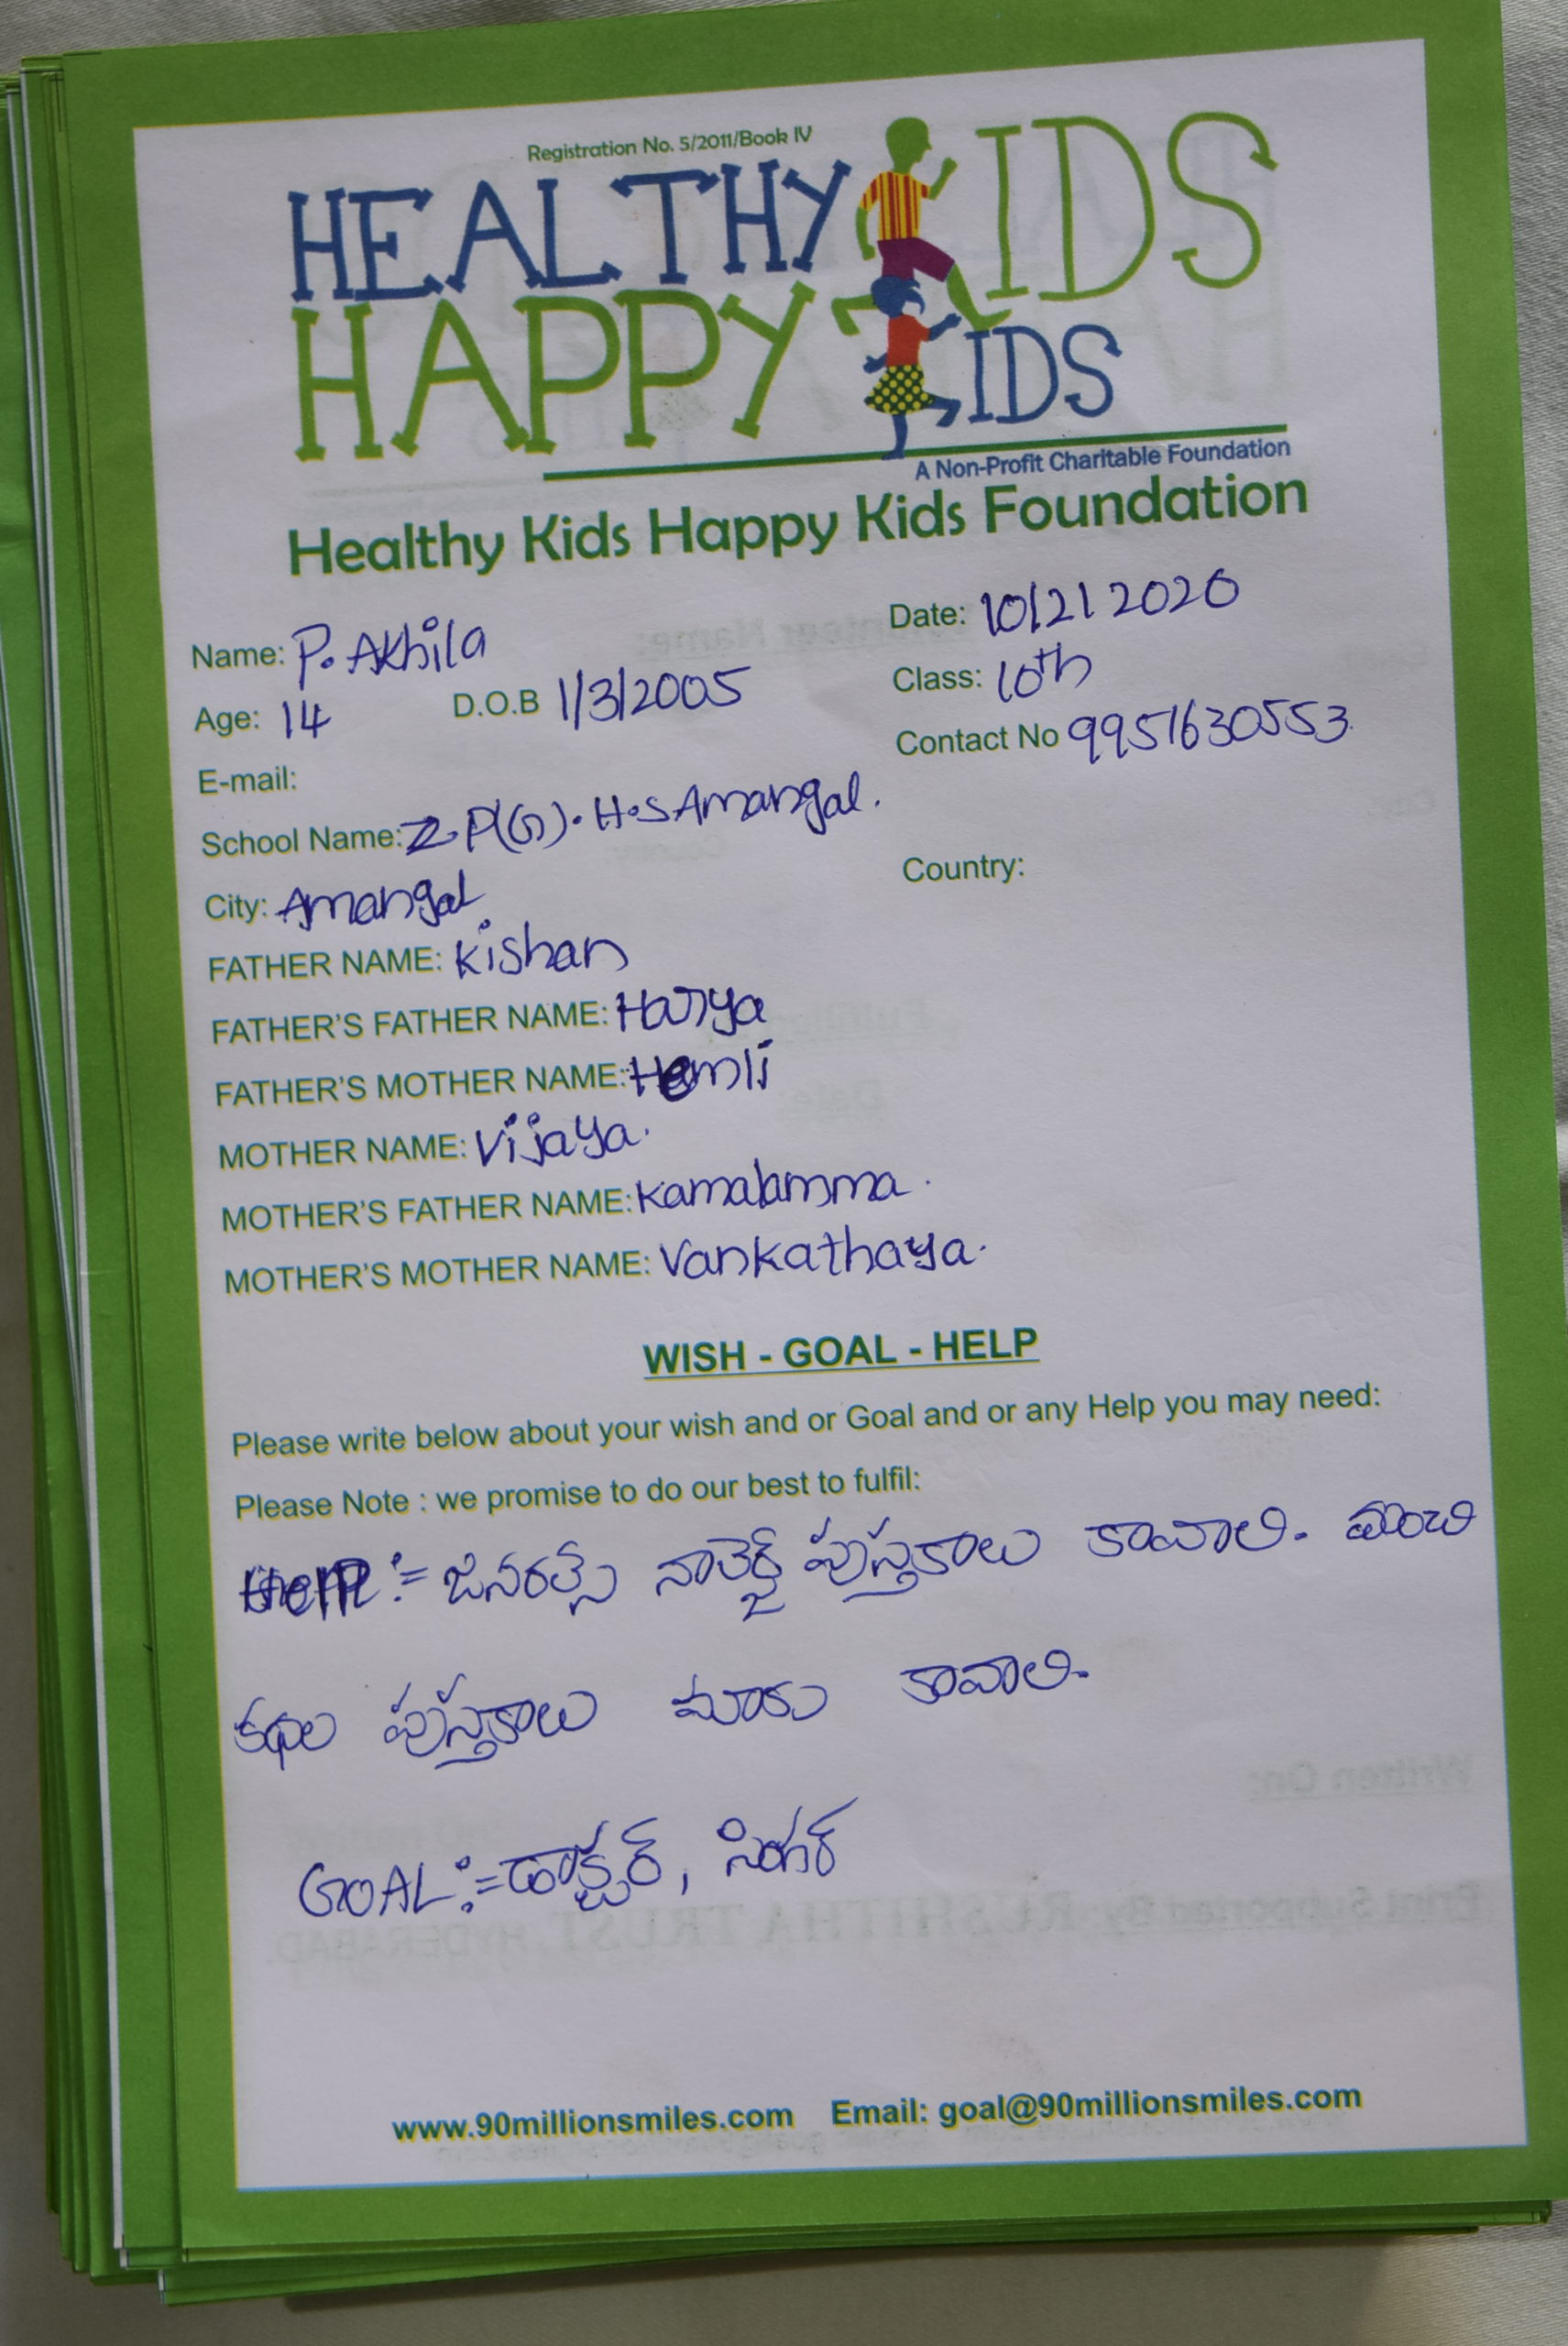 Registration No. 5/2011/Book IV
HEALTHY KIDS
HAPPY KIDS
A Non-Profit Charitable Foundation
Healthy Kids Happy Kids Foundation
Name: P. Akhila Date: 10/2/2020
Age: 14 D.O.B 1/3/2005 Class: 10th
E-mail: Contact No 9951630553
School Name: Z.P(G).H.S Amangal.
City: Amangal Country:
FATHER NAME: Kishan
FATHER'S FATHER NAME: Harya
FATHER'S MOTHER NAME: Hamli
MOTHER NAME: Vijaya.
MOTHER'S FATHER NAME: Kamalamma.
MOTHER'S MOTHER NAME: Vankathaya.
WISH - GOAL - HELP
Please write below about your wish and or Goal and or any Help you may need:
Please Note : we promise to do our best to fulfil:
Help := పుస్తకాలు కావాలి. మంచి
కథల పుస్తకాలు మాకు కావాలి.
GOAL := డాక్టర్, సింగర్
www.90millionsmiles.com Email: goal@90millionsmiles.com